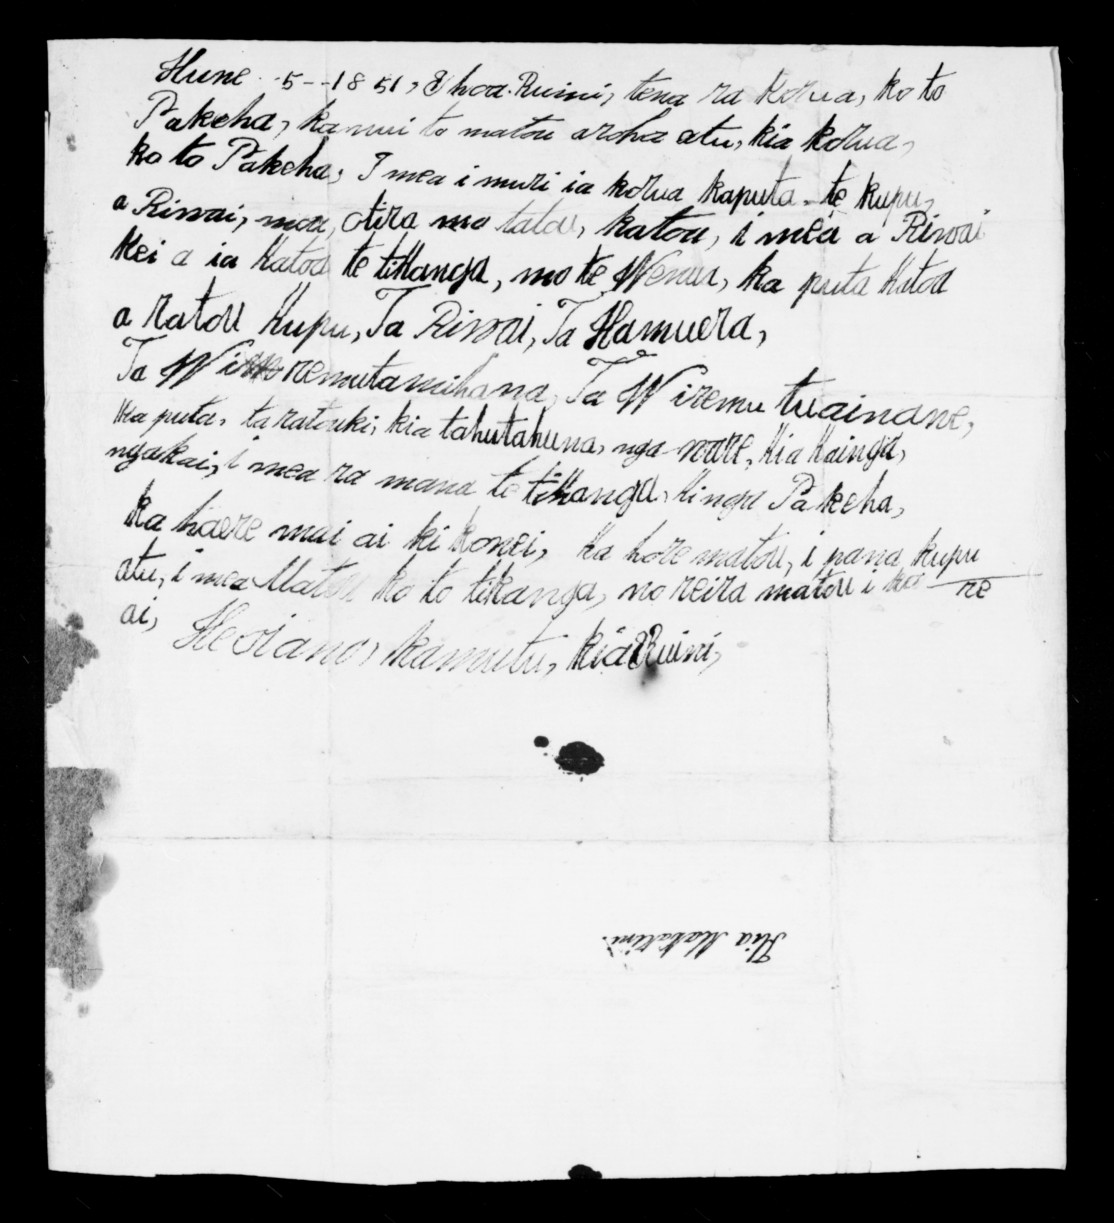 Hune - 5 - 1851, E hoa. Ruini, tena ra korua, ko to
Pakeha, ka nui to matou aroha atu, kia korua,
ko to Pakeha, I mea i muri ia korua kaputa te kupu,
a Riwai, mou, otira mo tatou, katou, i mea a Riwai
kei a ia katoa te tikanga, mo te Wenua, ka puta katoa
a ratou kupu, Ta Riwai, Ta Hamuera,
Ta Wiremutamihana, Ta Wiremu tuainane,
ka puta, ta ratouki, kia tahutahuna, nga ware, kia kainga,
ngakai, i mea ra mana te tikanga, kinga Pakeha,
ka haere mai ai ki konei, ka hore matou, i pana kupu
atu, i mea Matou ko to tikanga, no reira matou i ka-re
ai,
Heoiano, kamutu, kia Ruini,
Kia Makarini.